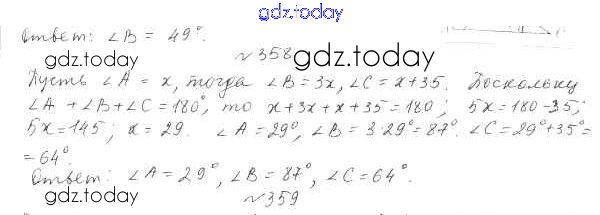 gdz.today
Ответ: ∠B = 49°.
№358
gdz.today gdz.today
Пусть ∠A = x, тогда ∠B = 3x, ∠C = x + 35. Поскольку
∠A + ∠B + ∠C = 180°, то x + 3x + x + 35 = 180; 5x = 180 - 35;
5x = 145; x = 29. ∠A = 29°, ∠B = 3·29° = 87°. ∠C = 29° + 35° =
= 64°.
Ответ: ∠A = 29°, ∠B = 87°, ∠C = 64°.
gdz.today gdz.today
№359